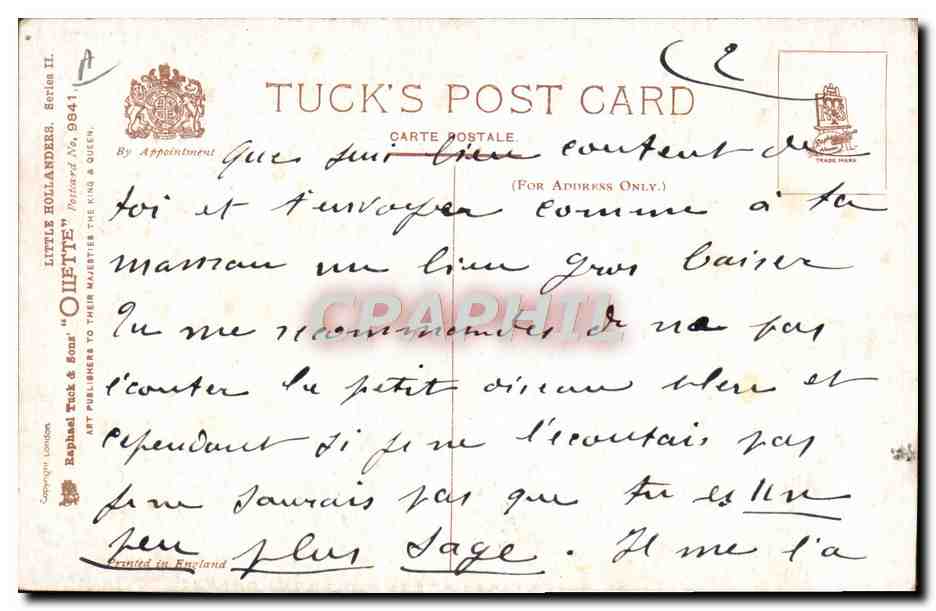 A
2
TUCK'S POST CARD
CARTE POSTALE.
By Appointment
TRADE MARK
(FOR ADDRESS ONLY.)
LITTLE HOLLANDERS. Series II.
Raphael Tuck & Sons' "OILETTE" Postcard No. 9841.
ART PUBLISHERS TO THEIR MAJESTIES THE KING & QUEEN.
Copyright London
Printed in England
que suis bien content de
toi et t'envoyer comme à ta
maman un bien gros baiser
Tu me recommandes de ne pas
l'écouter le petit oiseau bleu et
cependant si je ne l'écoutais pas
je ne saurais pas que tu es un
peu plus sage. Il me l'a
CPARPHIL